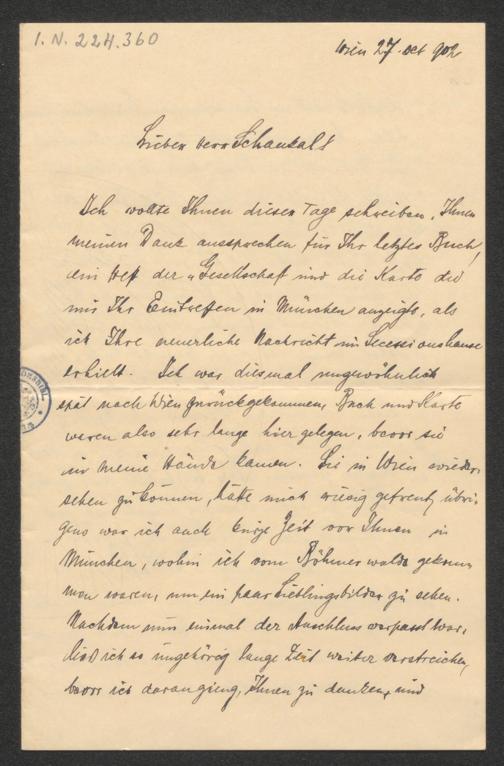 I. N. 224.360
Wien 27. Oct 902
Lieber Herr Schaukal!
Ich wollte Ihnen dieser Tage schreiben, Ihnen
meinen Dank aussprechen für Ihr letztes Buch,
dem Heft der „Gesellschaft und die Karte die
mir Ihr Eintreffen in München anzeigte, als
ich Ihre neuerliche Nachricht im Secessionshause
erhielt. Ich war diesmal ungewöhnlich
spät nach Wien zurückgekommen, Buch und Karte
waren also sehr lange hier gelegen, bevor sie
in meine Hände kamen. Sie in Wien wieder
sehen zu können, hätte mich riesig gefreut, übri-
gens war ich auch kurze Zeit vor Ihnen in
München, wohin ich vom Böhmerwalde gekom-
men waren, um ein paar Lieblingsbilder zu sehen.
Nachdem nun einmal der Anschluss verpasst war,
ließ ich so ungehörig lange Zeit weiter verstreichen,
bevor ich darangieng, Ihnen zu danken, und